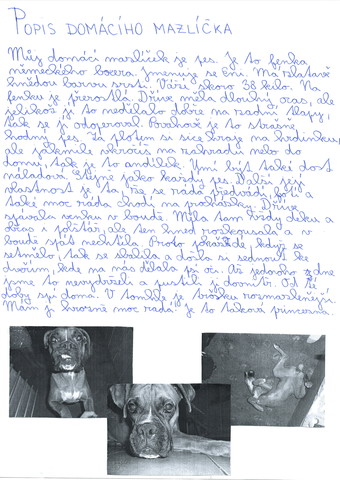 POPIS DOMÁCÍHO MAZLÍČKA
Můj domácí mazlíček je pes. Je to fenka
německého boxera. Jmenuje se Eni. Má zlatavě
hnědou barvu srsti. Váží skoro 38 kilo. Na
fenku je přerostlá. Dříve měla dlouhý ocas, ale
jelikož jí to nedělalo dobře na zadní tlapy,
tak se jí odoperoval. Povahově je to strašně
hodný pes. Za plotem si sice hraje na hrdinku,
ale jakmile vkročíš na zahradu nebo do
domu, tak je to andílek. Umí být také dost
náladová. Stejně jako každý pes. Další její
vlastnost je ta, že se ráda předvádí, fotí a
také moc ráda chodí na procházky. Dříve
spávala venku v boudě. Měla tam vždy deku a
občas i polštář, ale ten hned rozkousala a v
boudě spát nechtěla. Proto pokaždé, když se
setmělo, tak se sbalila a došla si sednout ke
dveřím, kde na nás dělala psí oči. Až jednoho dne
jsme to nevydrželi a pustili ji domů. Od té
doby spí doma. V tomhle je trošku rozmazlenější.
Mám ji hrozně moc ráda je to taková princezna.